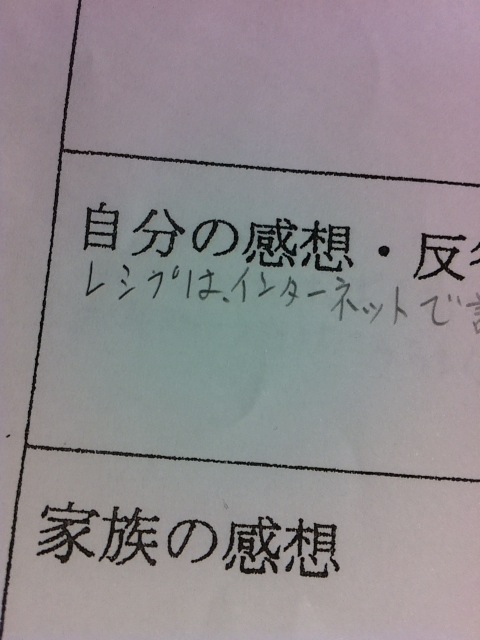 自分の感想・反
レシプは、インターネットで
家族の感想